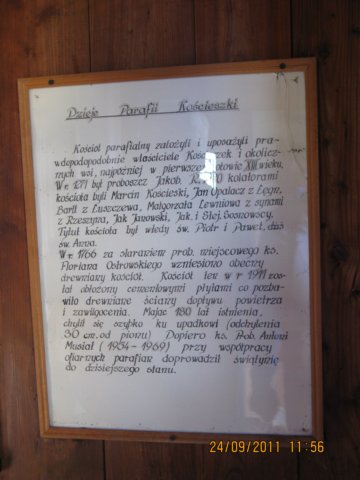 Dzieje Parafii Kościeszki
Kościół parafialny założyli i uposażyli pra-
wdopodopodobnie właściciele Kościeszek i okolicz-
nych wsi, najpóźniej w pierwszej połowie XIII wieku.
W r. 1271 był proboszcz Jakob. kolatorami
kościoła byli Marcin Kościeski, Jan Opalacz z Łęgn,
Bartł z Łuszczewa, Małgorzata Lewniowa z synami
z Rzeszyna, Jak Janowski, Jak. i Stej. Sosnowscy.
Tytuł kościoła był wtedy św. Piotr i Paweł, dziś
św. Anna.
W r. 1766 za staraniem prob. miejscowego ks.
Floriana Ostrowskiego wzniesiono obecny
drewniany kościół. Kościół ten w r 1911 zos-
tał obłożony cementowymi płytami co pozba-
wiło drewniane ściany dopływu powietrza
i zawilgocenia. Mając 180 lat istnienia,
chylił się szybko ku upadkowi (odchylenia
30 cm. od pionu) Dopiero ks. Prob. Antoni
Musiał (1954-1969) przy współpracy
ofiarnych parafian doprowadził świątynię
do dzisiejszego stanu.
24/09/2011 11:56